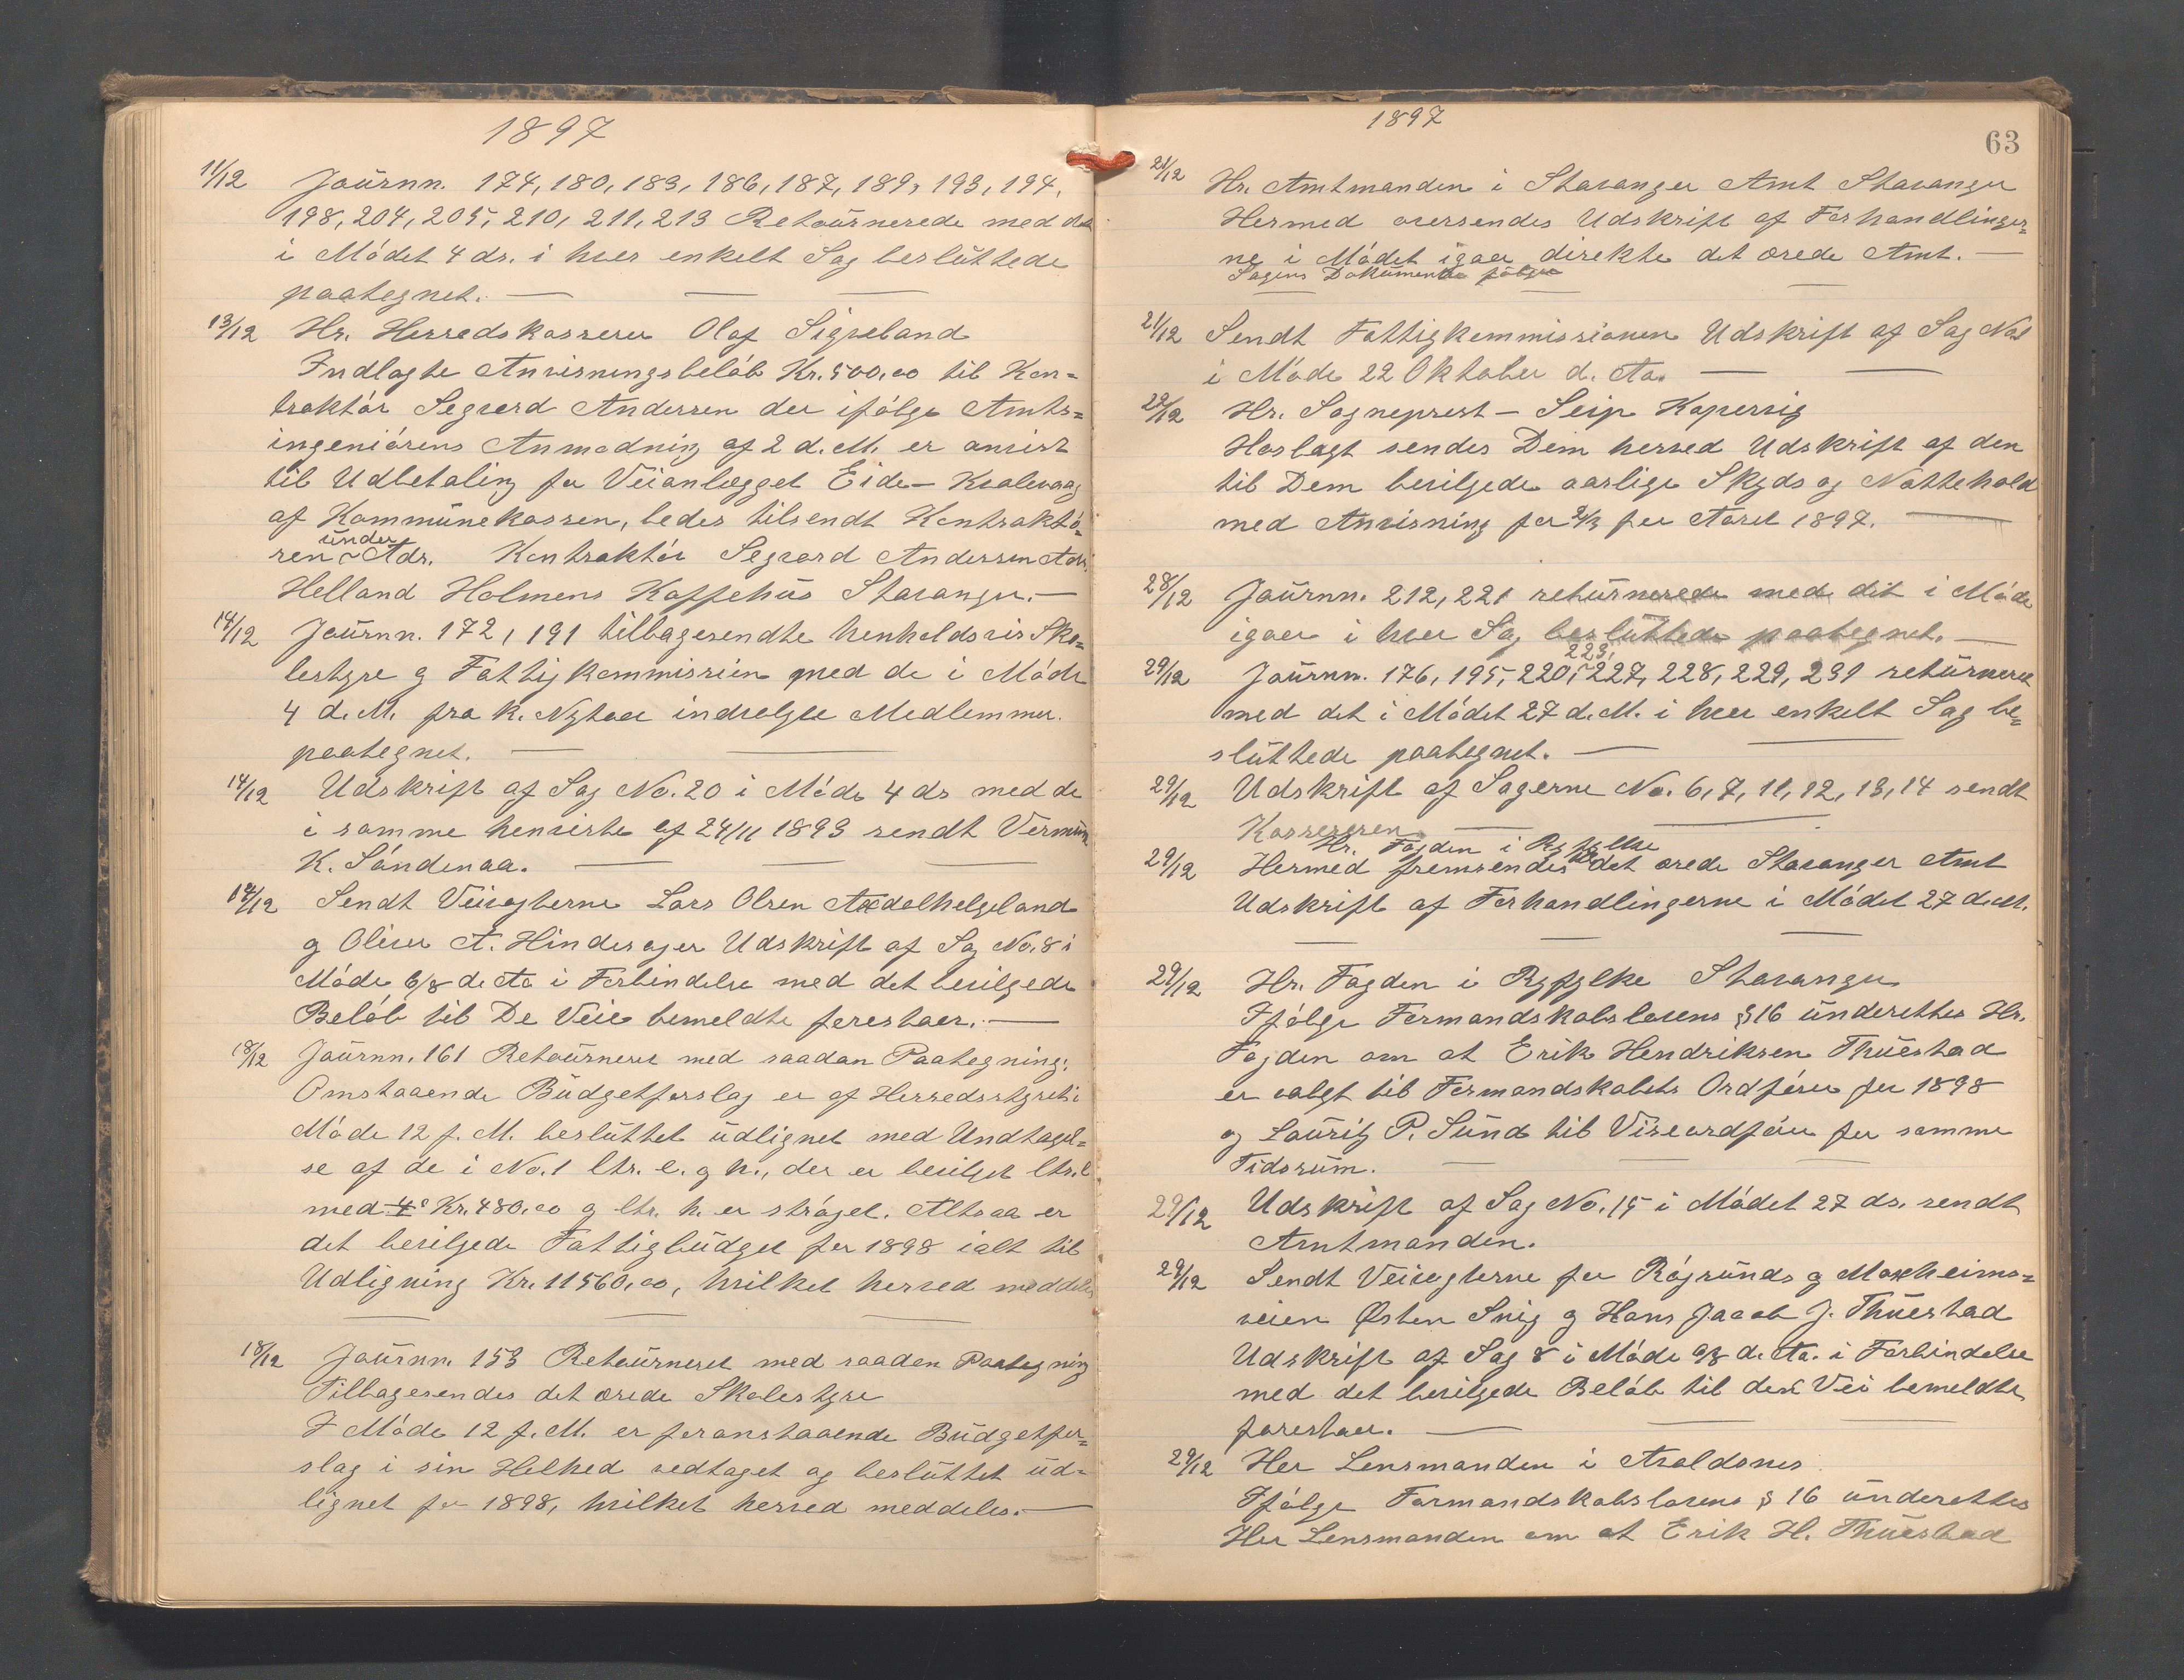 1897
11/12 Journn. 174, 180, 183, 186, 187, 189, 193, 194,
198, 204, 205, 210, 211, 213 Retournerede med det
i Mödet 4 ds. i hver enkelt Sag besluttede
paategnet. —
13/12 Hr. Herredskasserer Olaf Sigveland
Indlagte Anvisningsbelöb Kr. 500,00 til Kon=
traktör Segvard Andersen der ifölge Amts=
ingeniörens Anmodning af 2 d. M. er anvist
til Udbetaling for Veianlægget Eide – Kvalevaag
af Kommunekassen, bedes tilsendt Kontraktö=
ren under Adr. Kontraktör Segvard Andersen Adr.
Helland Holmens Kaffehus Stavanger. —
14/12 Journn. 172, 191 tilbagesendte henholdsvis Sko=
lestyre g Fattigkommission med de i Möde
4 d. M. fra k. Nytaar indvalgte Medlemmer
paategnet. —
14/12 Udskrift af Sag No. 20 i Möde 4 ds med de
i samme henviste af 24/11 1893 sendt
K. Sandenaa. —
14/12 Sendt Veivogterne Lars Olsen Aadalhelgeland
g Oliver A. Hindesager Udskrift af Sag No. 8 i
Möde 6/8 d. Aa i Forbindelse med det bevilgede
Belöb til De Veie bemeldte forestaar. —
18/12 Journn. 161 Retourneret med saadan Paategning:
Omstaaende Budgetforslag er af Herredsstyret i
Möde 12 f. M. besluttet udlignet med Undtagel=
se af de i No. 1 ltr. e. g h., der er bevilget ltr. e
med Kr. 480,00 g ltr. h. er ströget. Altsaa er
det bevilgede Fattigbudget for 1898 ialt til
Udligning Kr. 11560,00, hvilket herved meddeles
18/12 Journn. 153 Retourneret med saadan Paategning
Tilbagesendes det ærede Skolestyre
I Möde 12 f. M. er foranstaaende Budgetfor=
slag i sin Helhed vedtaget og besluttet ud=
lignet for 1898, hvilket herved meddeles. —
1897
63
21/12 Hr. Amtmanden i Stavanger Amt Stavanger
Hermed oversendes Udskrift af Forhandlinger=
ne i Mödet igaar direkte det ærede Amt. —
Sagens Dokumenter fölger
21/12 Sendt Fattigkommissionen Udskrift af Sag No 1
i Möde 22 Oktober d. Aa. —
22/12 Hr. Sogneprest – Seip Kopervig
Hoslagt sendes Dem herved Udskrift af den
til Dem bevilgede aarlige Skyds og Nattehold
med Anvisning for 2/3 for Aaret 1897. —
28/12 Journn. 212, 221 returnerede med det i Möde
igaar i hver Sag besluttede paategnet. —
29/12 Journn. 176, 195, 220, 223, 227, 228, 229, 231 returneret
med det i Mödet 27 d. M. i hver enkelt Sag be=
sluttede paategnet. —
29/12 Udskrift af Sagerne No. 6, 7, 11, 12, 13, 14 sendt
Kassereren. —
Hr. Fogden i Ryfylke
29/12 Hermed fremsendes til det ærede Stavanger Amt
Udskrift af Forhandlingerne i Mödet 27 d. M.
29/12 Hr. Fogden i Ryfylke Stavanger
Ifölge Formandskabslovens § 16 underettes Hr.
Fogden om at Erik Hendriksen Thuestad
er valgt til Formandskabets Ordförer for 1898
og Lauritz P. Sund til Viseordförer for samme
Tidsrum. —
29/12 Udskrift af Sag No. 15 i Mödet 27 ds. sendt
Amtmanden.
29/12 Sendt Veivogterne for Rögsunds g Moxheims=
veien Østen Snig g Hans Jacob J. Thuestad
Udskrift af Sag 8 i Möde 6/8 d. Aa. i Forbindelse
med det bevilgede Belöb til den Vei bemeldte
forestaar. —
29/12 Her Lensmanden i Avaldsnes
Ifölge Formandskabslovens § 16 underettes
Her Lensmanden om at Erik H. Thuestad